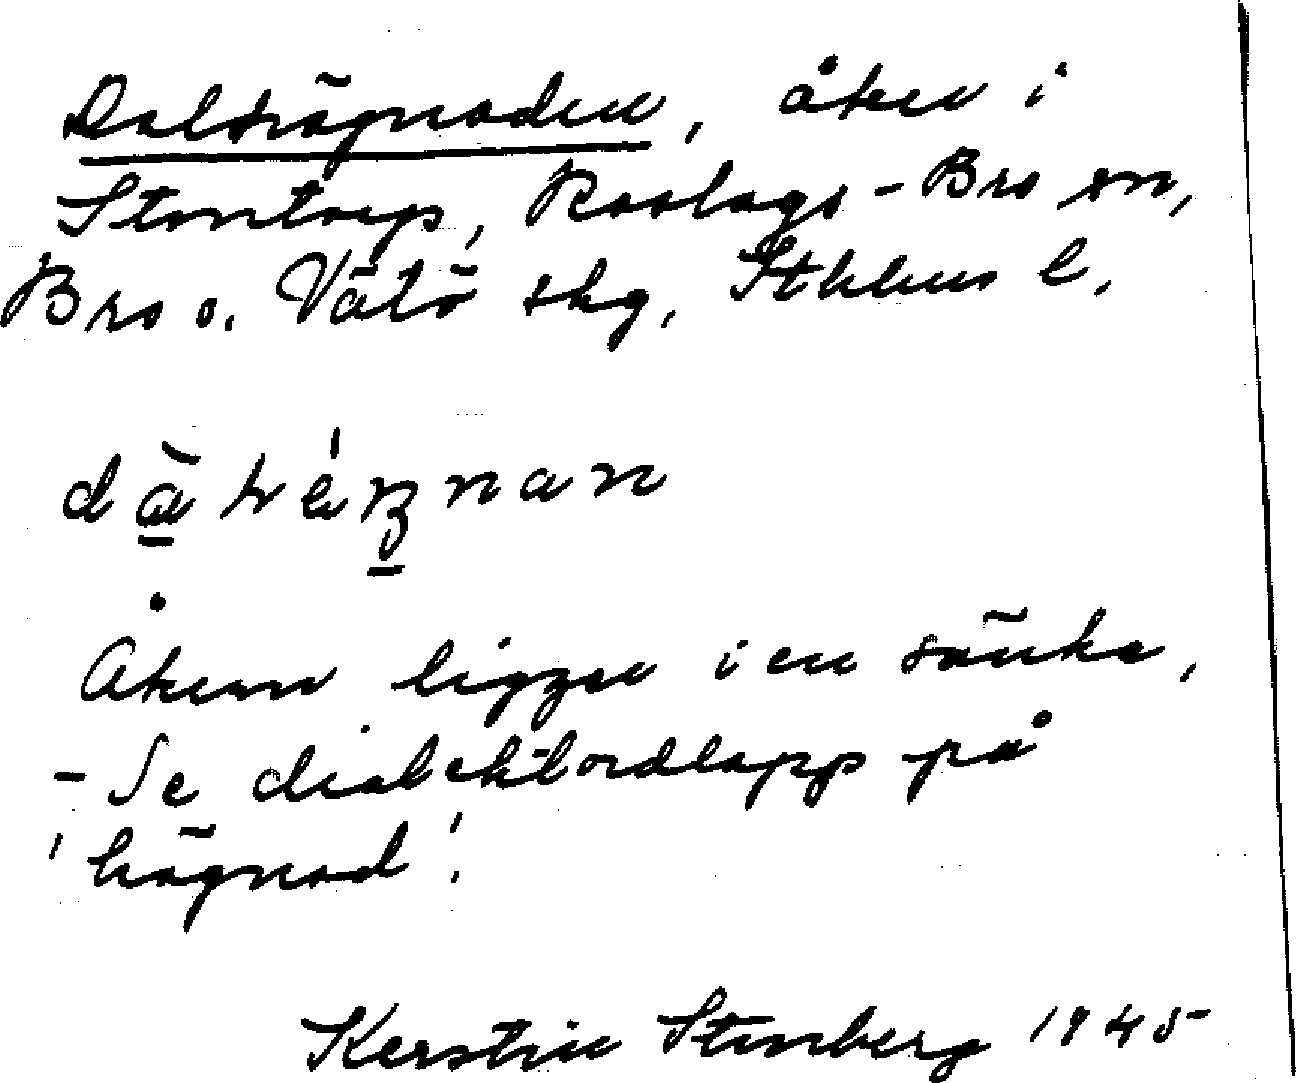 Dalhägnaden, åker i
Stentorp, Roslags-Bro sn,
Bro o. Vätö skg, Sthlms l.
Åkern ligger i en sänka,
- Se dialektordlapp på
'hägnad'.
Kerstin Stenberg 1945